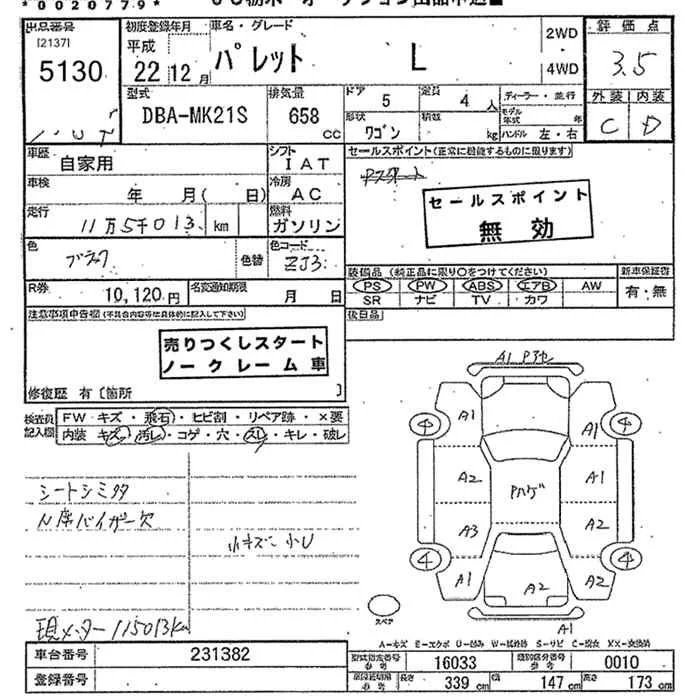 *0020779*
出品番号
[2137]
5130
初度登録年月
平成
22 12月
車名・グレード
パレット L
2WD
4WD
評価点
3.5
外装 内装
C D
型式
DBA-MK21S
排気量
658
cc
ドア
5
定員
4 人
形状
ワゴン
積数
kg
ディーラー・並行
モデル年式 年
ハンドル 左・右
車歴
自家用
シフト
IAT
車検
年 月( 日)
冷房
AC
走行
11万5千013 km
燃料
ガソリン
色
ブラック
色替
色コード
ZJ3
R券
10,120円
名変通知期限
月 日
セールスポイント(正常に機能するものに限ります)
セールスポイント
無効
装備品(純正品に限り○をつけてください)
PS PW ABS エアB AW
SR ナビ TV カワ
新車保証書
有・無
後日品
注意事項申告欄(不具合内容等は具体的に記入して下さい)
売りつくしスタート
ノークレーム車
修復歴 有〔箇所 〕
検査員
記入欄
FW キズ・飛石・ヒビ割・リペア跡・×要
内装 キズ・汚レ・コゲ・穴・スレ・キレ・破レ
シートシミ
N席バイザー欠
小キズ 小U
現メーター 115013km
A1
A1
A1
A2
A1
A3
A2
A1
A2
A1
スペア
A-キズ E-エクボ U-凹み W-補修跡 S-サビ C-腐食 XX-交換済
車台番号
231382
登録番号
型式指定番号
参考
16033
類別区分番号
参考
0010
長さ
339 cm
幅
147 cm
高さ
173 cm